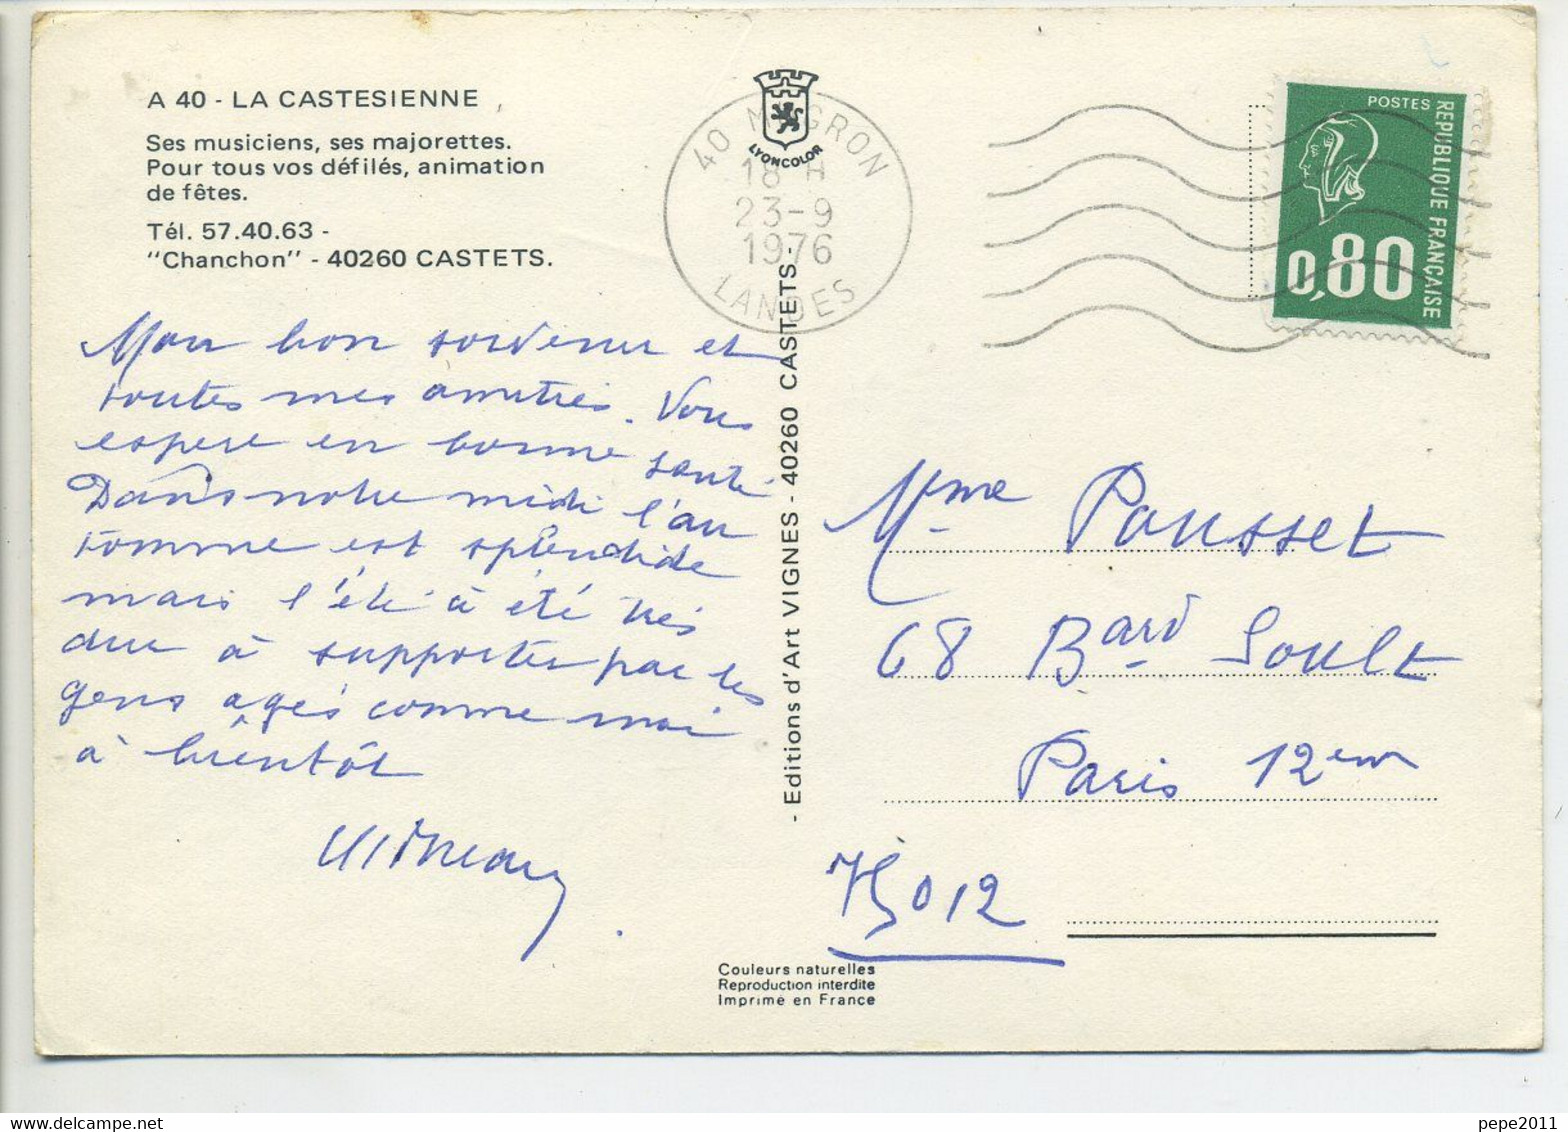 A 40 - LA CASTESIENNE
Ses musiciens, ses majorettes.
Pour tous vos défilés, animation
de fêtes.
Tél. 57.40.63 -
"Chanchon" - 40260 CASTETS.
LYONCOLOR
40 MUGRON
18 H
23-9
1976
LANDES
POSTES
REPUBLIQUE FRANÇAISE
0,80
Mon bon souvenir et
toutes mes amitiés. Vous
espere en bonne santé
Dans notre midi l'au
tomne est splendide
mais l'été à été très
dur à supporter par les
gens agés comme moi
à bientôt
- Editions d'Art VIGNES - 40260 CASTETS -
Mme Pousset
68 Bard Soult
Paris 12em
75012
Couleurs naturelles
Reproduction interdite
Imprimé en France
pepe2011